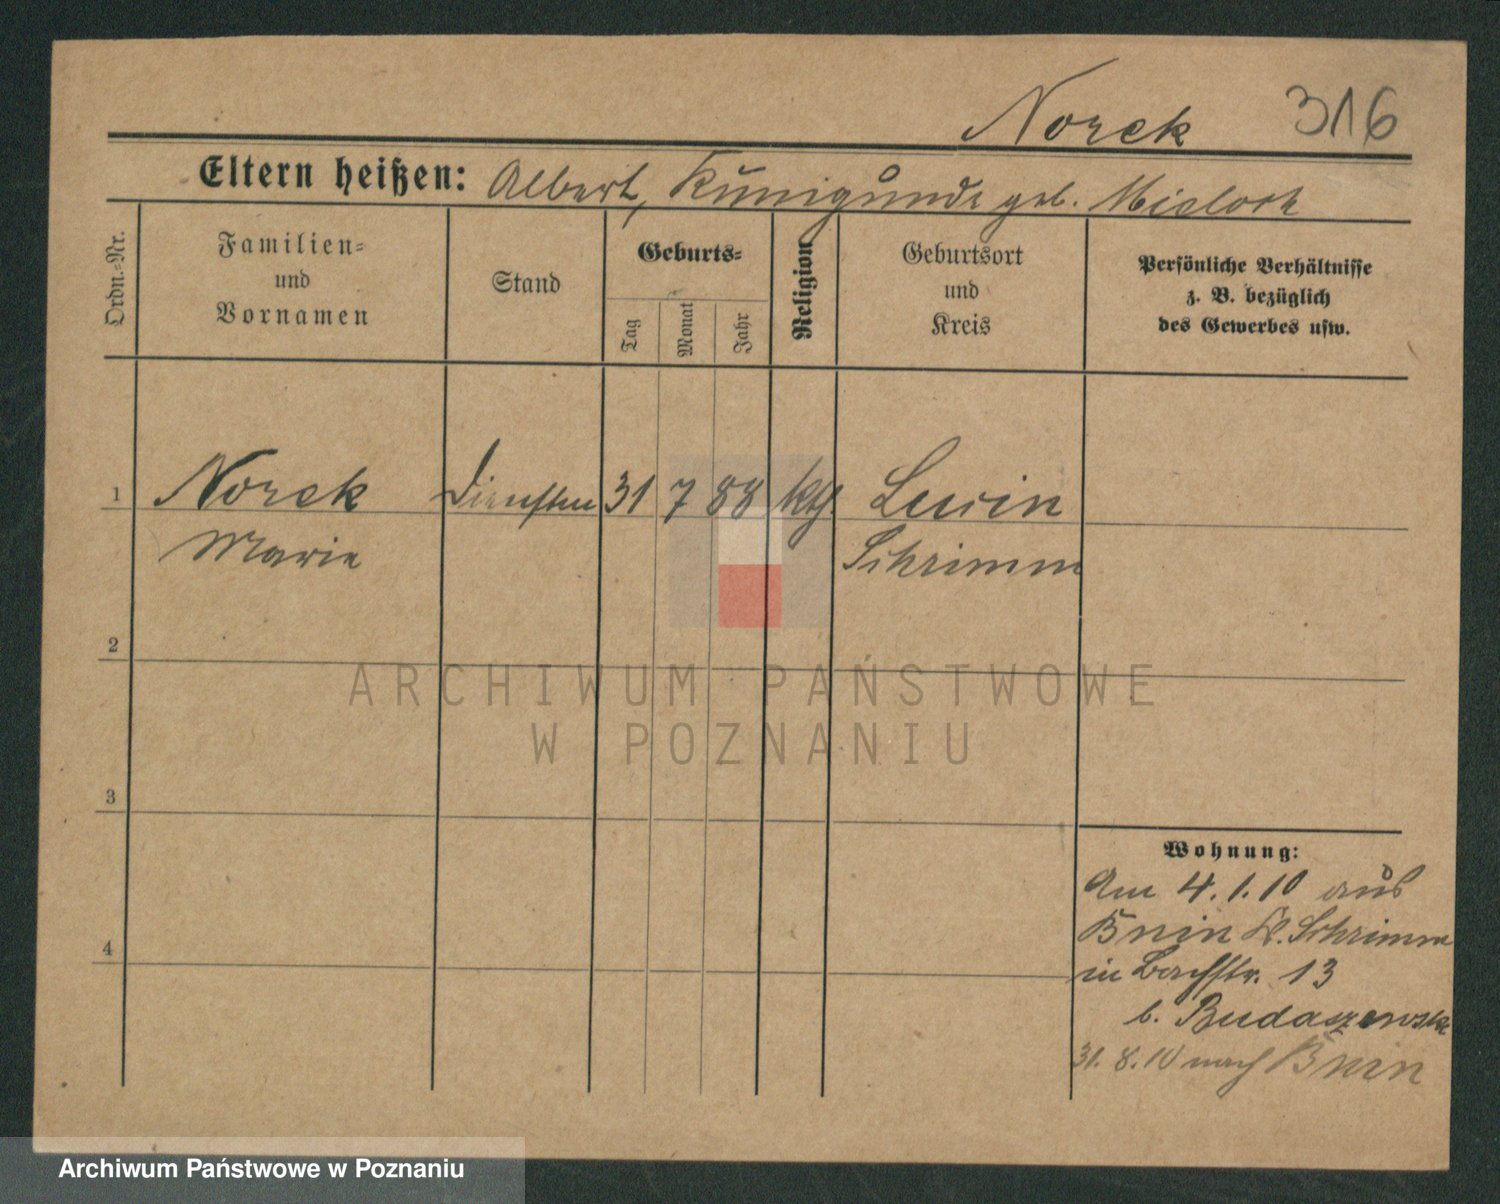 Norck 316
Eltern heißen: Albert, Kunigunde geb.
Ordn.=Nr.
Familien=
und
Vornamen
Stand
Geburts=
Tag
Monat
Jahr
Religion
Geburtsort
und
Kreis
Persönliche Verhältnisse
z. B. bezüglich
des Gewerbes usw.
1 Norck 31 7 88 kth. Lucin
Marie Schrimm
2
3
4
Wohnung:
Am 4.1.10 aus
Bnin Kr. Schrimm
in Bachstr. 13
b. Budaszewska
31. 8. 10 nach Bnin
ARCHIWUM PAŃSTWOWE
W POZNANIU
Archiwum Państwowe w Poznaniu